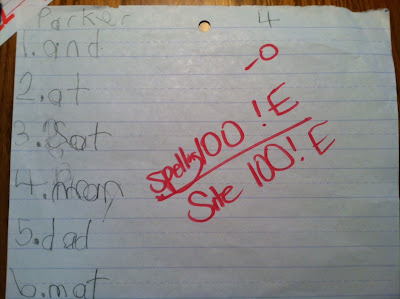 Parker 4
1. and
-0
2. at
Spelling 100! E
3. sat
Site 100! E
4. man
5. dad
6. mat